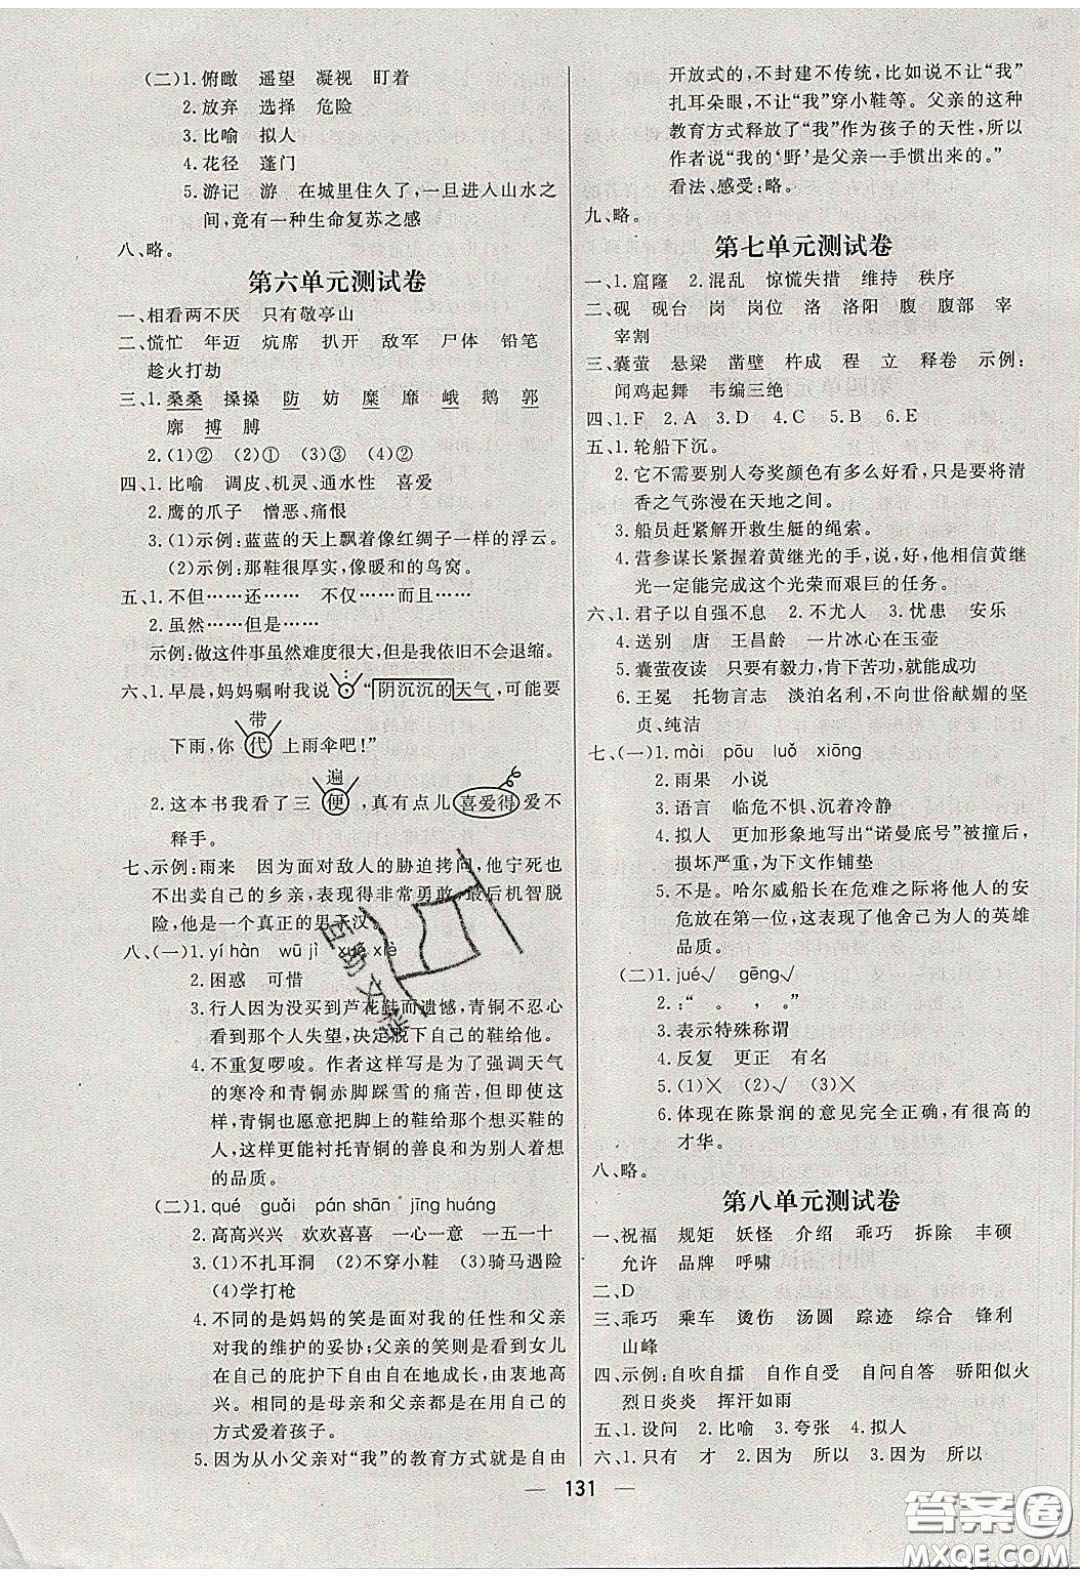 (二)1.俯瞰 遥望 凝视 盯着
2.放弃 选择 危险
3.比喻 拟人
4.花径 蓬门
5.游记 游 在城里住久了,一旦进入山水之
间,竟有一种生命复苏之感
八、略。
第六单元测试卷
一、相看两不厌 只有敬亭山
二、慌忙 年迈 炕席 扒开 敌军 尸体 铅笔
趁火打劫
三、1.桑桑 搡搡 防 妨 糜 靡 峨 鹅 郭
廓 搏 膊
2.(1)② (2)① (3)② (4)②
四、1.比喻 调皮、机灵、通水性 喜爱
2.鹰的爪子 憎恶、痛恨
3.(1)示例:蓝蓝的天上飘着像红绸子一样的浮云。
(2)示例:那鞋很厚实,像暖和的鸟窝。
五、1.不但……还…… 不仅……而且……
2.虽然……但是……
示例:做这件事虽然难度很大,但是我依旧不会退缩。
六、1.早晨,妈妈嘱咐我说:“阴沉沉的天气,可能要
带
下雨,你代上雨伞吧!”
遍
2.这本书我看了三便,真有点儿喜爱得爱不
释手。
七、示例:雨来 因为面对敌人的胁迫拷问,他宁死也
不出卖自己的乡亲,表现得非常勇敢,最后机智脱
险,他是一个真正的男子汉。
八、(一)1.yí hàn wū jì xué xiè
2.困惑 可惜
3.行人因为没买到芦花鞋而遗憾,青铜不忍心
看到那个人失望,决定脱下自己的鞋给他。
4.不重复啰唆。作者这样写是为了强调天气
的寒冷和青铜赤脚踩雪的痛苦,但即使这
样,青铜也愿意把脚上的鞋给那个想买鞋的
人,这样更能衬托青铜的善良和为别人着想
的品质。
(二)1.qué guǎi pán shān jīng huáng
2.高高兴兴 欢欢喜喜 一心一意 一五一十
3.(1)不扎耳洞 (2)不穿小鞋 (3)骑马遇险
(4)学打枪
4.不同的是妈妈的笑是面对我的任性和父亲
对我的维护的妥协;父亲的笑则是看到女儿
在自己的庇护下自由自在地成长,感到高
兴。相同的是母亲和父亲都在用自己的
方式爱着孩子。
5.因为从小父亲对“我”的教育方式就是自由
开放式的,不封建不传统,比如说不让“我”
扎耳朵眼,不让“我”穿小鞋等。父亲的这种
教育方式释放了“我”作为孩子的天性,所以
作者说“我的‘野’是父亲一手惯出来的。”
看法、感受:略。
九、略。
第七单元测试卷
一、1.窟窿 2.混乱 惊慌失措 维持 秩序
二、砚 砚台 岗 岗位 洛 洛阳 腹 腹部 宰
宰割
三、囊萤 悬梁 凿壁 杵成 程 立 释卷 示例:
闻鸡起舞 韦编三绝
四、1.F 2.A 3.D 4.C 5.B 6.E
五、1.轮船下沉。
2.它不需要别人夸奖颜色有多么好看,只是要将清
香之气弥漫在天地之间。
3.船员赶紧解开救生艇的绳索。
4.营参谋长紧握着黄继光的手,说,好,他相信黄继
光一定能完成这个光荣而艰巨的任务。
六、1.君子以自强不息 2.不尤人 3.忧患 安乐
4.送别 唐 王昌龄 一片冰心在玉壶
5.囊萤夜读 只要有毅力,肯下苦功,就能成功
6.王冕 托物言志 淡泊名利,不向世俗献媚的坚
贞、纯洁
七、(一)1.mài pōu luǒ xiōng
2.雨果 小说
3.语言 临危不惧、沉着冷静
4.拟人 更加形象地写出“诺曼底号”被撞后,
损坏严重,为下文作铺垫
5.不是。哈尔威船长在危难之际将他人的安
危放在第一位,这表现了他舍己为人的英雄
品质。
(二)1.jué√ gēng√
2.:“ 。 , 。”
3.表示特殊称谓
4.反复 更正 有名
5.(1)× (2)√ (3)×
6.体现在陈景润的意见完全正确,有很高的
才华。
八、略。
第八单元测试卷
一、祝福 规矩 妖怪 介绍 乖巧 拆除 丰硕
允许 品牌 呼啸
二、D
三、乖巧 乘车 烫伤 汤圆 踪迹 综合 锋利
山峰
四、示例:自吹自擂 自作自受 自问自答 骄阳似火
烈日炎炎 挥汗如雨
五、1.设问 2.比喻 3.夸张 4.拟人
六、1.只有 才 2.因为 所以 3.因为 所以
— 131 —
答案圈
MXQE.COM